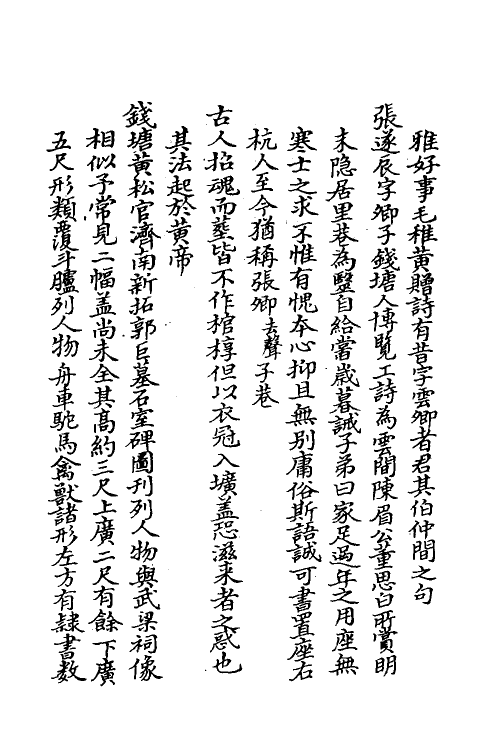 雅好事毛稚黄贈詩有昔字雲卿者君其伯仲間之句
張遂辰字卿子錢塘人博覧工詩為雲間陳眉公董思白所賞明
末隐居里巷為毉自給當歲暮誡子弟曰家足過年之用座無
寒士之求不惟有愧夲心抑且無别庸俗斯語誠可書置座右
杭人至今猶稱張卿去聲子巷
古人招魂而塟皆不作棺椁但以衣冠入壙盖恐滋来者之惑也
其法起於黄帝
錢塘黄松官濟南新拓郭巨墓石室碑圖刊列人物與武梁祠像
相似予常見二幅盖尚未全其髙約三尺上廣二尺有餘下廣
五尺形類覆斗臚列人物舟車駝馬禽獸諸形左方有隷書数